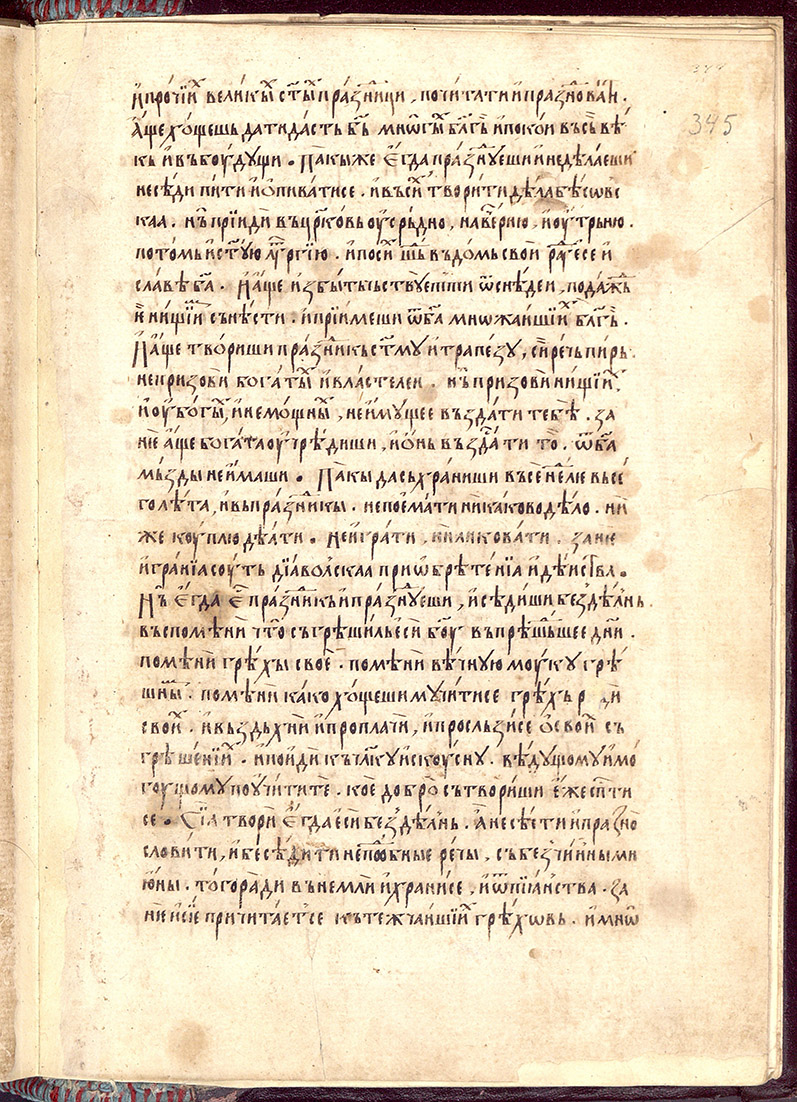 345
и҆про́чїих вели́кых ст҃ы́х пра́зници, почита́ти и҆пра́зновати.
А҆ще хо́щешь да́ти да́сть бг҃ь мнѡ́гы бл҃гь и҆поко́и въсь вѣ́
кь и҆въ боу́дущи. Па́кы же є҆гда̀ пра́знуеши и҆недѣ́лаеши
несѣ́ди пи́ти и҆ѻ҆пива́тисе. и҆въси́х твори́ти дѣ́ла бѣсѡ́вс
каа. нь̀ прїи́ди въ цр҃ковь оу҆срь́дно, наве́черню, и҆оу҆́трьню.
пото́мь и҆ст҃ую лїтургїю. и҆поси́х шь́дь въ до́мь сво́й ра́дуесе и҆
сла́ве ба҃. И҆а҆́ще и҆збы́тьчьствуеши ѿ снѣ́деи, пода́жь
є҆ ни́щїим сънѣ́сти. и҆прїи́меши ѿ ба҃ мнѡжа́ишїих бл҃гь.
И҆а҆́ще тво́риши пра́зникь ст҃му и҆ трапе́зу, си́речь пи́рь.
непризови̏ бога́тых и҆вла́стелеи. нь̀ призови̏ ни́щїих,
и҆оу҆бо́гых, и҆немо́щных, неи҆му́щее възда́ти тебѣ̀. за
нѐ а҆́ще бога́тааго оу҆чрѣ́диши, и҆ѻ҆́нь възда́ти то̀. ѿ ба҃
мь́зды неи҆́маши. Па́кы да съхра́ниши въсе не́дѣлю въсе
го лѣ́та, и҆въ пра́зникы. непоє҆ма́ти ника́ково дѣ́ло. ни
же коу́плю дѣ́ати. Неи҆гра́ти, ниликова́ти. за нѐ
и҆гра́нїа соу́ть дїа́волскаа приѡбрѣ́тенїа и҆дѣ́иства.
Нь̀ є҆гда̀ є҆ пра́зникь и҆пра́знуеши, и҆сѣди́ши без дѣ́лнь.
въспомѣ́ни что̀ съгрѣши́ль є҆си̏ бг҃оу въ прѣ́шьдшее дни́.
помѣ́ни грѣ́хы свое̏. помѣ́ни вѣ́чную моу́ку грѣ́
шных. помѣ́ни ка́ко хо́щеши му́читисе грѣ́хь ра́ди
свои́х. и҆въздъхни̏ и҆пропла́чи, и҆просльзи́се ѻ҆ свои́х съ
грѣше́нїих. и҆пои́ди къ чл҃ку и҆скоу́сну. вѣ́дущому и҆мо
гоу́щому поу҆чи́ти те̏. коѐ добро̀ сътво́риши є҆же сп҃сти
се. Сїа̀ твори̏ є҆гда̀ є҆си̏ без дѣ́лнь. А҆ не сѣ́сти и҆пра́зно
сло́вити, и҆бесѣ́дити непод́обные ре́чы, съ без́чинными
ю҆ны. То́го ра́ди въне́мли и҆храни́се, и҆ѿ пїа́нства. за
нѐ и҆сїѐ причита́етсе къ те́жчаишїих грѣ́хѡвь. и҆ мнѡ̀